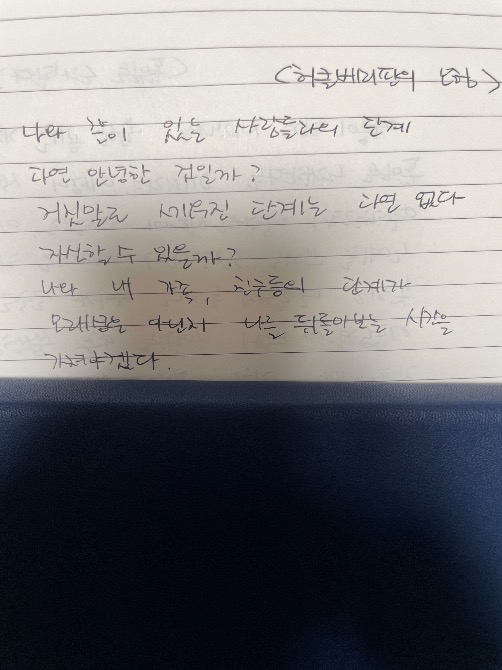 <허클베리핀의 모험>
나와 끈이 있는 사람들과의 관계
과연 안녕한 것일까?
거짓말로 세워진 관계는 과연 없다
자신할 수 있을까?
나와 내 가족, 친구들의 관계가
모래성은 아닌지 나를 뒤돌아보는 시간을
가져야겠다.